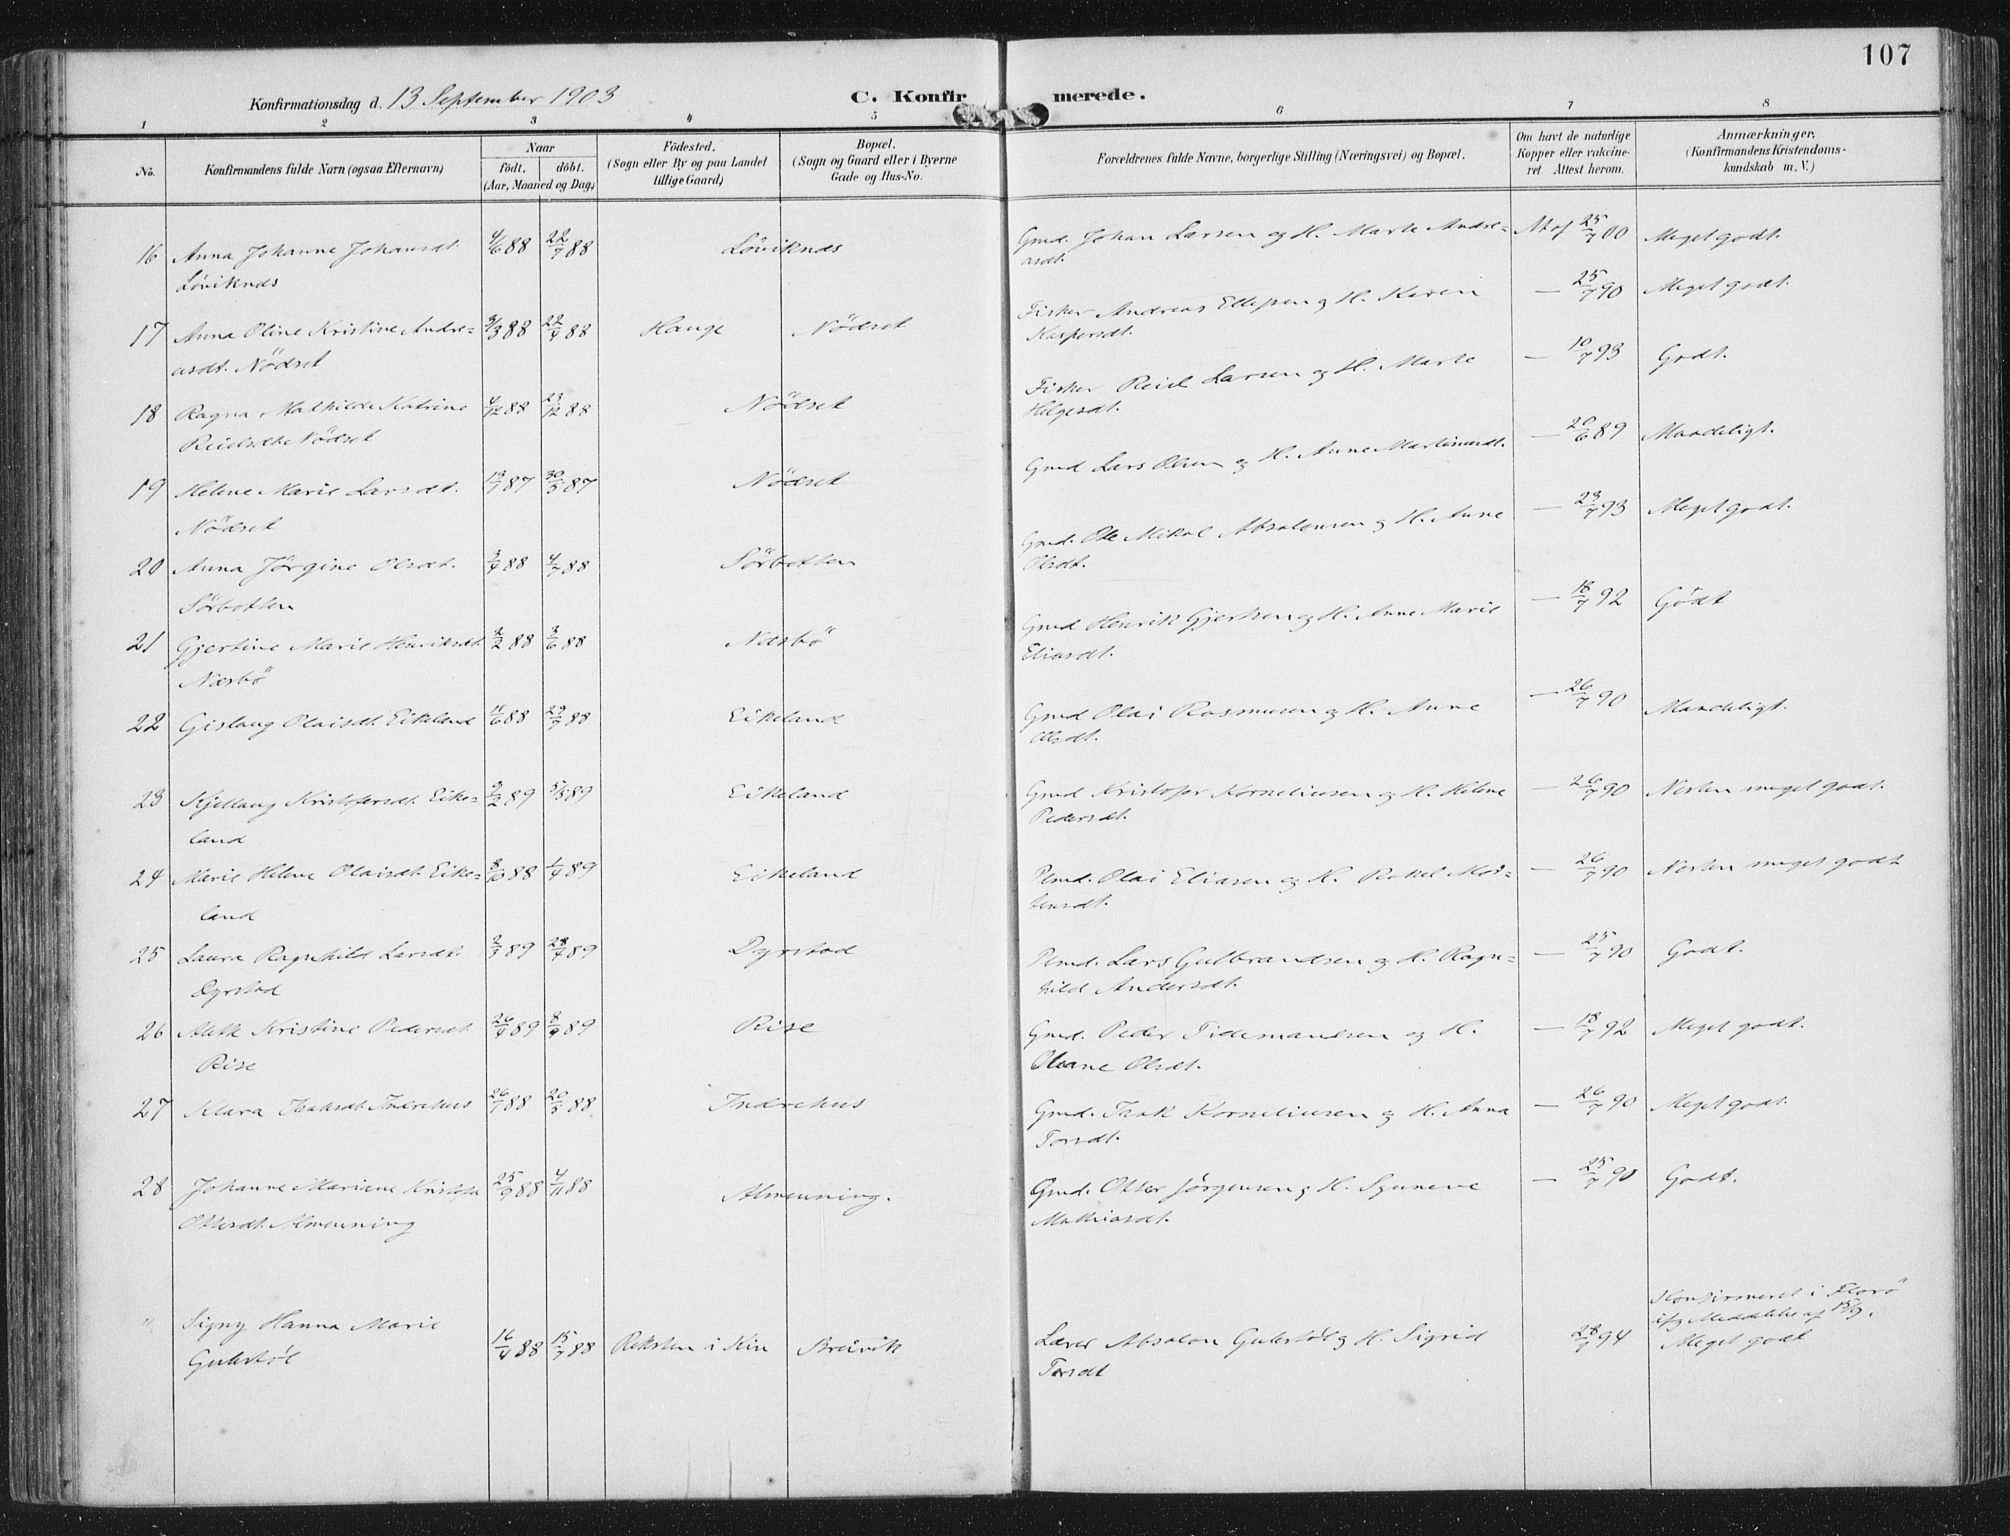 107
Konfirmationsdag d. 13 September 1903 C. Konfirmerede.
1 2 3 4 5 6 7 8
No. Konfirmandens fulde Navn (ogsaa Efternavn) Naar födt. döbt. (Aar, Maaned og Dag) Födested. (Sogn eller By og paa Landet tillige Gaard) Bopæl. (Sogn og Gaard eller i Byerne Gade og Hus-No. Forældrenes fulde Navne, borgerlige Stilling (Næringsvei) og Bopæl. Om havt de naturlige Kopper eller vakcineret. Attest herom. Anmærkninger. (Konfirmandens Kristendomskundskab m. V.)
16 Anna Johanne Johansdt. 4/6 88 22/7 88 Löviknæs Gmd. Johan Larsen og H. Marte Andre= At af 25/7 00 Meget godt.
Löviknæs asdt.
17 Anna Oline Kristine Andre= 3/3 88 22/4 88 Hauge Nödset Fisker Andreas Ellefsen og H. Karen — 25/7 90 Meget godt.
asdt. Nödset Kaspersdt.
18 Ragna Mathilde Katrine 4/12 88 23/12 88 Nödset Fisker Reiel Larsen og H. Marte — 10/7 93 Godt.
Reielsdt. Nödset Helgesdt.
19 Helene Marie Larsdt. 87 87 Nödset Gmd Lars Olsen og H. Anne Martinusdt. — 20/6 89 Maadeligt.
Nödset
20 Anna Jörgine Olsdt. 88 4/7 88 Sörbotten Gmd. Ole Mikal Absalonsen og H. Anne — 23/7 93 Meget godt.
Sörbotten Olsdt.
21 Gjertine Marie Henriksdt. 2/2 88 3/6 88 Næsbö Gmd Henrik Gjertsen og H. Anne Marie — 18/7 92 Godt
Næsbö Eliasdt.
22 Gislaug Olaisdt. Eikeland 11/6 88 29/7 88 Eikeland Gmd Olai Rasmusen og H. Anne — 26/7 90 Maadeligt.
Olsdt.
23 Kjellaug Kristofersdt. Eike= 2/2 89 5/5 89 Eikeland Gmd Kristofer Korneliusen og H. Helene — 26/7 90 Nesten meget godt.
land Pedersdt.
24 Marie Helene Olaisdt. Eike= 8/10 88 1/4 89 Eikeland Pmd. Olai Eliasen og H. Rakel Mor= — 26/7 90 Nesten meget godt
land tensdt.
25 Laura Ragnhild Larsdt. 2/3 89 28/4 89 Dyrstad Pmd. Lars Gulbrandsen og H. Ragn= — 25/7 90 Godt.
Dyrstad hild Andersdt.
26 Alette Kristine Pedersdt. 26/4 89 8/9 89 Rise Gmd. Peder Tidemandsen og H. — 18/7 92 Meget godt.
Rise Oleane Olsdt.
27 Klara Isaksdt. Indrehus 26/1 88 20/5 88 Indrehus Gmd. Isak Korneliusen og H. Anna — 26/7 90 Meget godt.
Torsdt.
28 Johanne Mariane 25/9 88 4/11 88 Almenning. Gmd. Otter Jörgensen og H. Synneve — 25/7 90 Godt.
Ottersdt. Almenning Mathiasdt.
" Signy Hanna Marie Konfirmeret i Florö
ifg Meddelelse af 15/9.
Gulestöl 16/4 88 15/7 88 Reksten i Kin Breivik Lærer Absalon Gulestöl og H. Sigrid 94 Meget godt
Torsdt